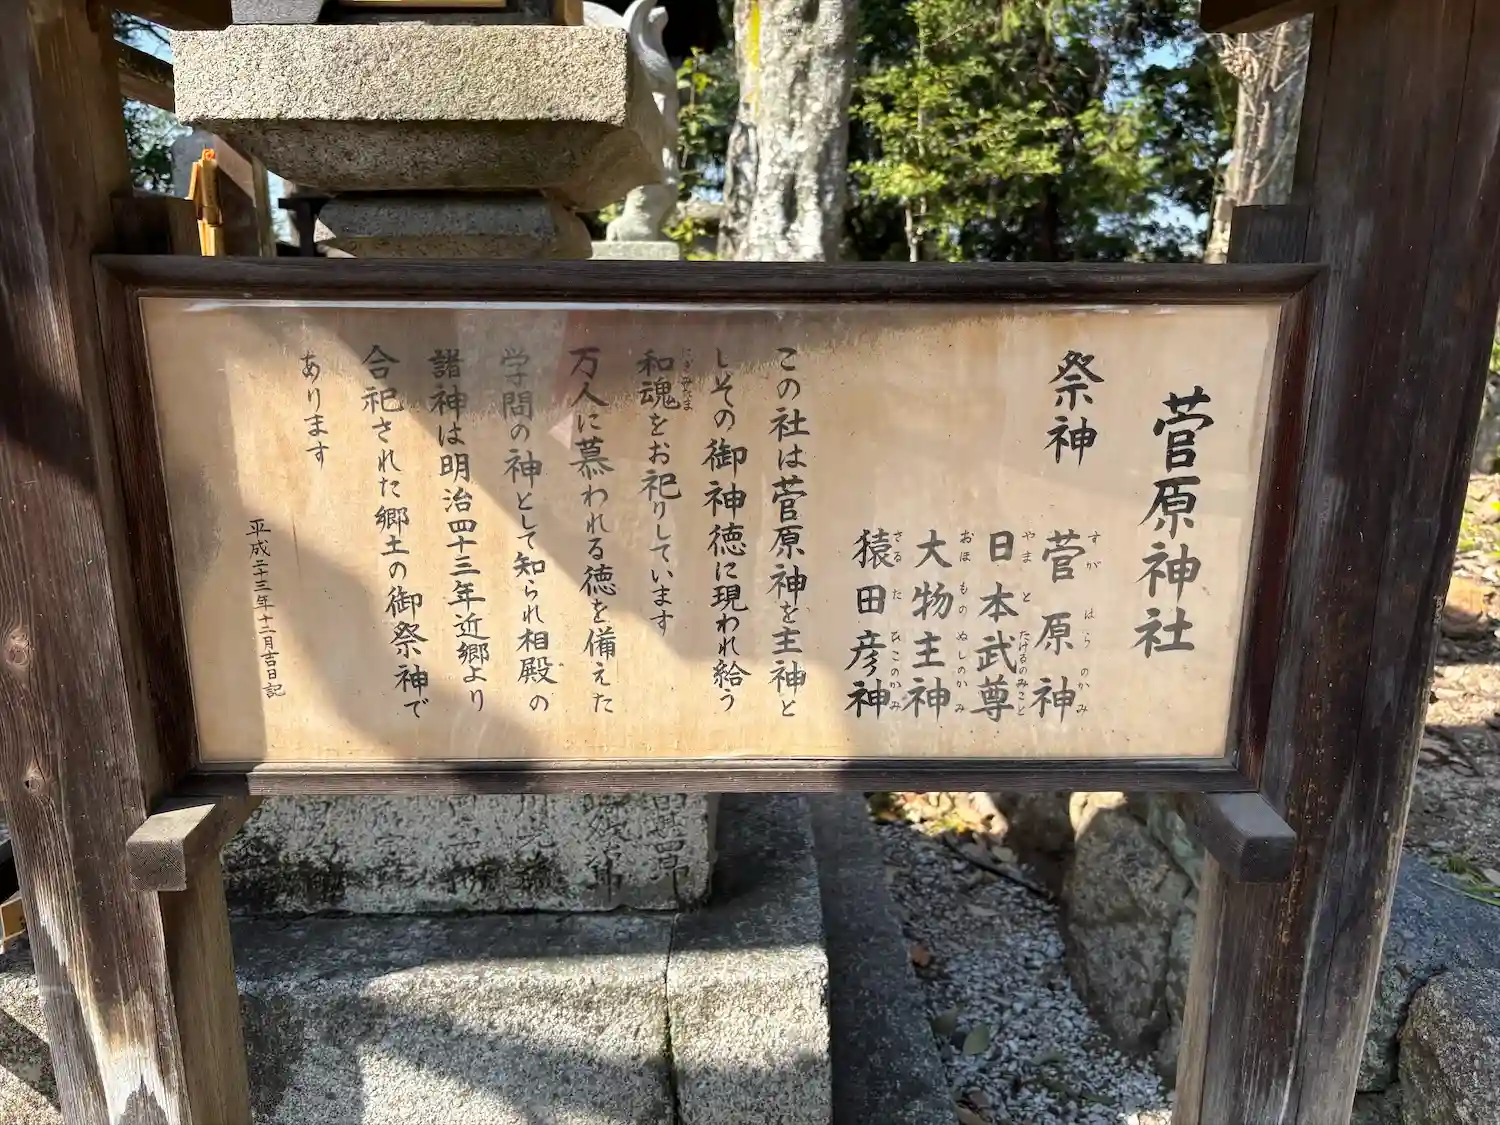 菅原神社
祭神
菅原神
すが はら のかみ
日本武尊
やま と たけるのみこと
大物主神
おほ もの ぬしのかみ
猿田彦神
さる た ひこのかみ
この社は菅原神を主神と
しその御神徳に現われ給う
和魂をお祀りしています
にぎみたま
万人に慕われる徳を備えた
学問の神として知られ相殿の
諸神は明治四十三年近郷より
合祀された郷土の御祭神で
あります
平成二十三年十二月吉日記